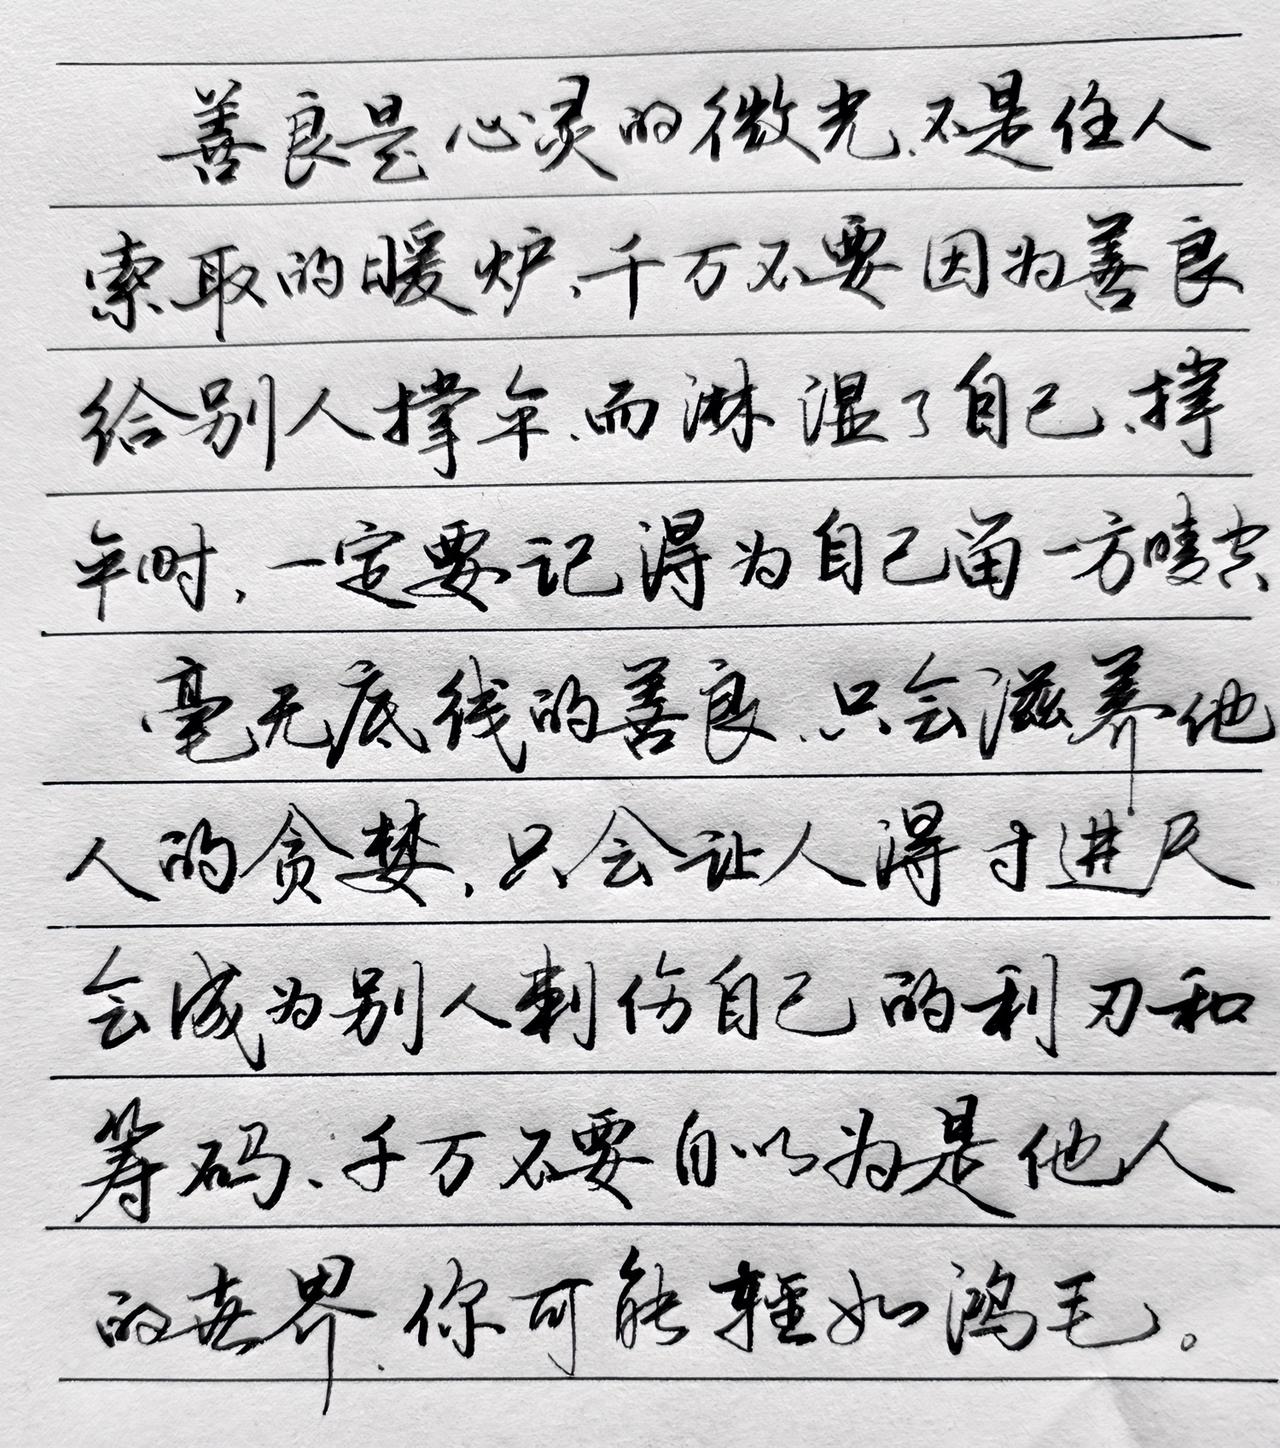 善良是心灵的微光、不是任人
索取的暖炉、千万不要因为善良
给别人撑伞、而淋湿了自己、撑
伞时，一定要记得为自己留一方晴空
毫无底线的善良、只会滋养他
人的贪婪，只会让人得寸进尺
会成为别人刺伤自己的利刃和
筹码、千万不要自以为是他人
的世界、你可能輕如鸿毛。